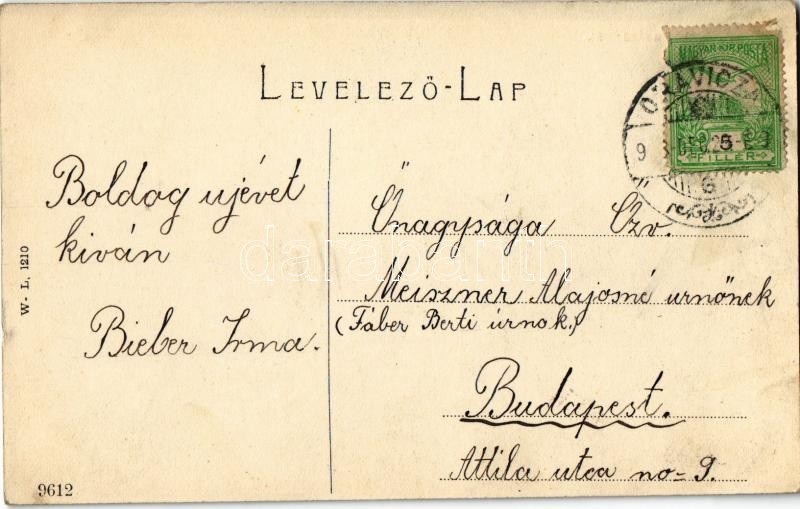 LEVELEZŐ-LAP
MAGYAR KIR. POSTA
5
FILLÉR
ORAVICZA
9
Boldog ujévet
kiván
Bieber Irma.
Őnagysága Özv.
Meiszner Alajosné urnőnek
(Fáber Berti úrnak.)
Budapest.
Attila utca no=9.
W. L. 1210
9612
darabanth